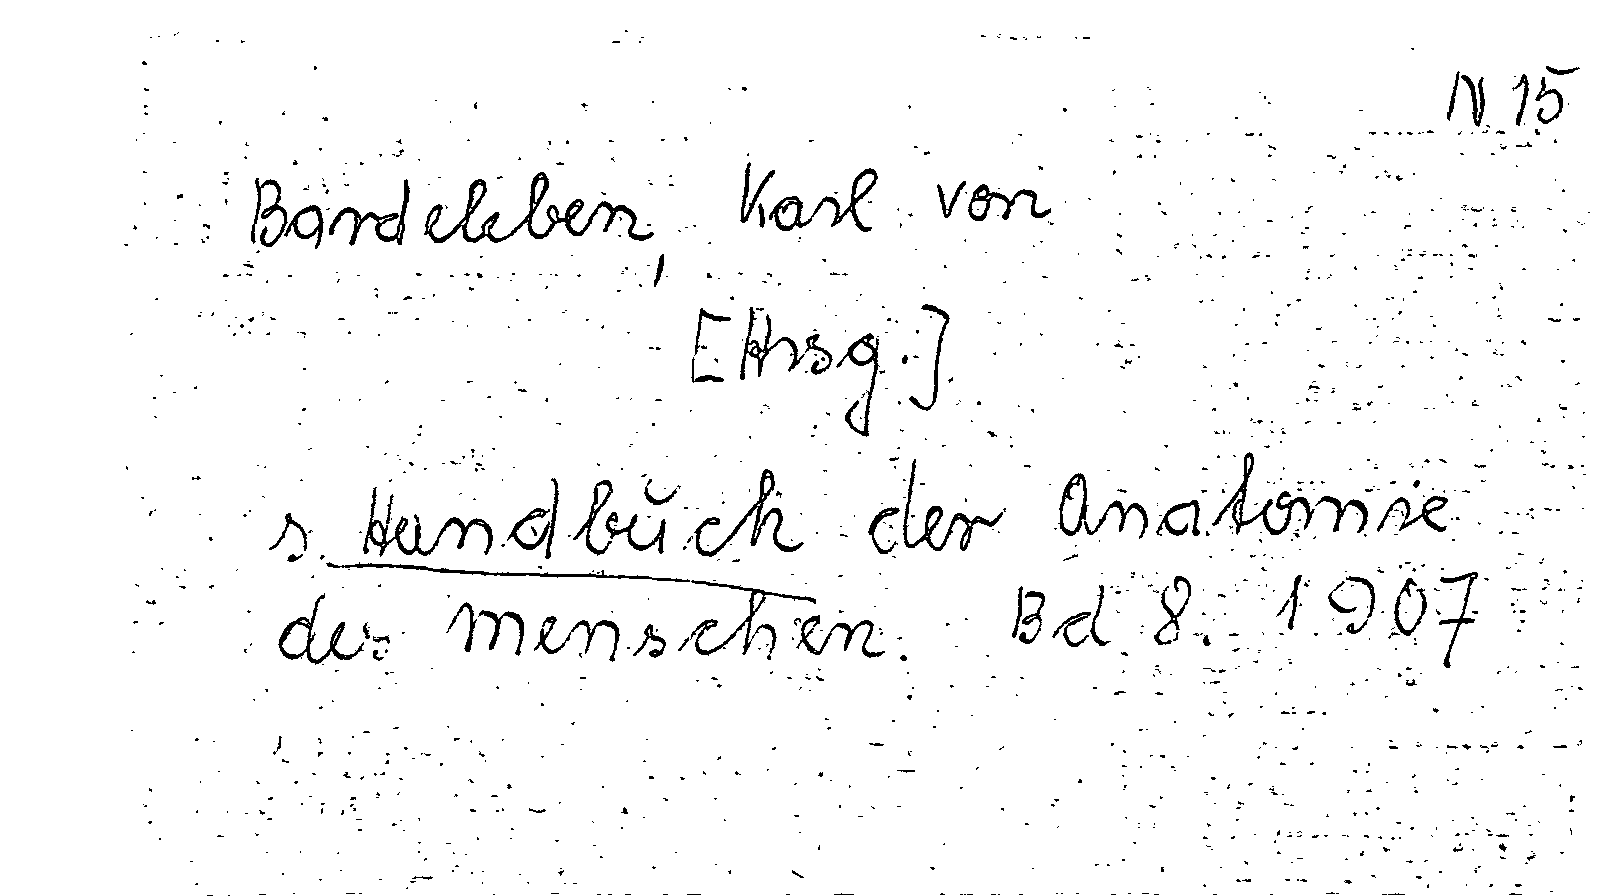 N 15
Bardeleben, Karl von
[Hrsg.]
s. Handbuch der Anatomie
des Menschen. Bd 8. 1907